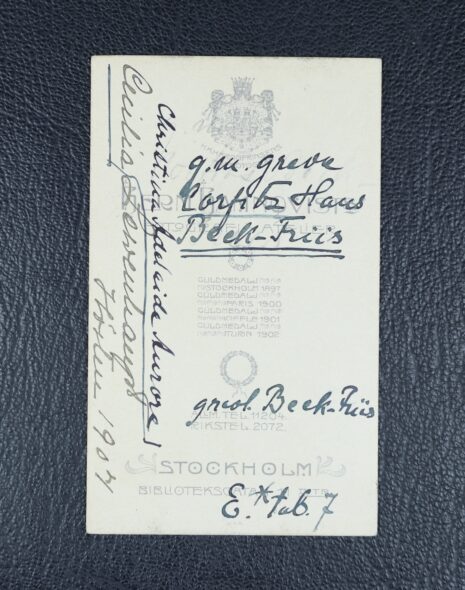 g.m. greve
Corfitz Hans
Beck-Friis
GULDMEDALJ
STOCKHOLM 1897
GULDMEDALJ
PARIS 1900
GULDMEDALJ
1901
GULDMEDALJ
TURIN 1902
grevl. Beck-Friis
ALM. TEL. 11204.
RIKSTEL. 2072.
STOCKHOLM
BIBLIOTEKSGATAN
E.* tab. 7
Christina Adelaide Aurore
Cecilia Lewenhaupt
1904